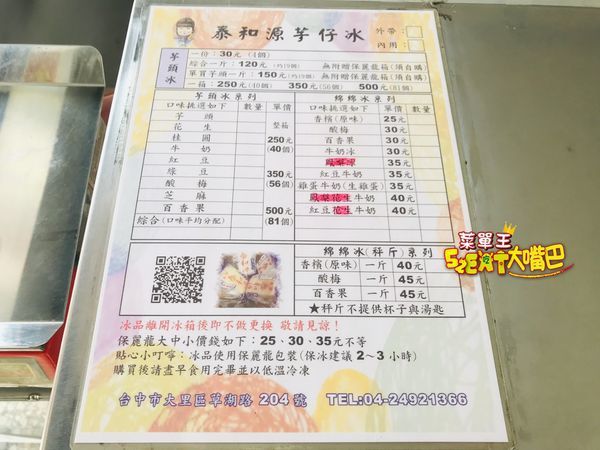 泰和源芋仔冰
外帶:
內用:
芋頭冰
一份:30元(4個)
綜合一斤:120元(約19個) 無附贈保麗龍箱(須自購)
單買芋頭一斤:150元(約19個) 無附贈保麗龍箱(須自購)
一箱:250元(40個) 350元(56個) 500元(81個)
芋頭冰系列
口味挑選如下 數量 單價
芋頭
花生
桂圓
牛奶
紅豆
綠豆
酸梅
芝麻
百香果
綜合(口味平均分配)
整箱
250元
(40個)
350元
(56個)
500元
(81個)
綿綿冰系列
口味挑選如下 數量 單價
香檳(原味) 25元
酸梅 30元
百香果 30元
牛奶冰 30元
鳳梨冰 35元
紅豆牛奶 35元
雞蛋牛奶(生雞蛋) 35元
鳳梨花生牛奶 40元
紅豆花生牛奶 40元
綿綿冰(秤斤)系列
香檳(原味) 一斤 40元
酸梅 一斤 45元
百香果 一斤 45元
★秤斤不提供杯子與湯匙
冰品離開冰箱後即不做更換 敬請見諒!
保麗龍大中小價錢如下:25、30、35元不等
貼心小叮嚀:冰品使用保麗龍包裝(保冰建議2~3小時)
購買後請盡早食用完畢並以低溫冷凍
台中市大里區草湖路 204 號 TEL:04-24921366
菜單王
SZEXT大嘴巴